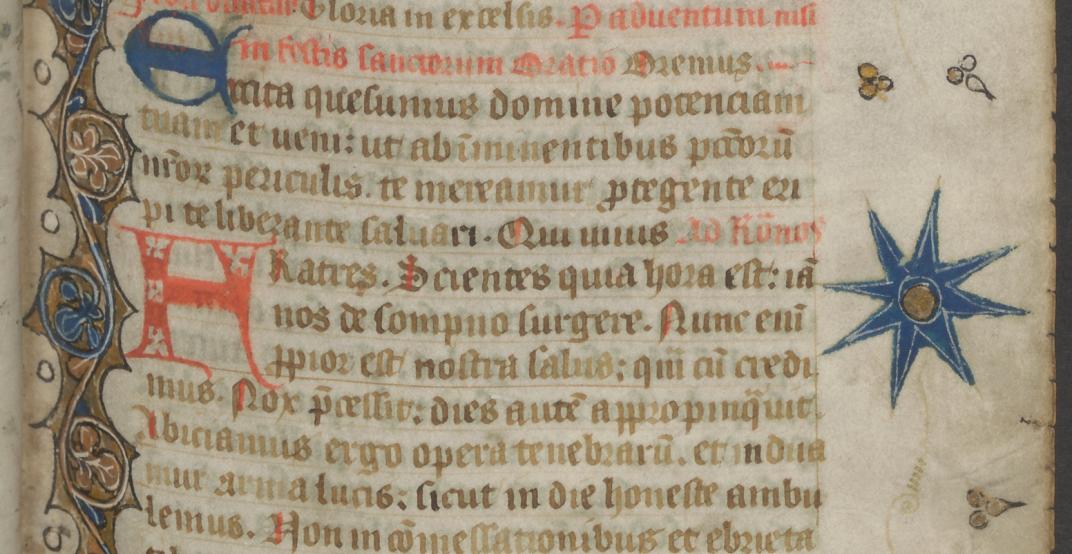 Gloria in excelsis. P aduentum nisi
in festis sanctorum Oratio Oremus.
Excita quesumus domine potenciam
tuam et ueni: ut ab īminentibus pctōorū
nr̄or periculis. te mereamur ꝓtegente eri
pi te liberante saluari. Qui uiuis Ad Rōnos
FRatres. Scientes quia hora est: iā
nos de sompno surgere. Nunc enī
ꝓpior est nostra salus; qm̄ cū credi
mus. Nox p̄cessit: dies autē appropinq̄uit.
Abiciamus ergo opera tenebrarū. et indua
mur arma lucis: sicut in die honeste ambu
lemus. Non in cōmessationibus et ebrieta